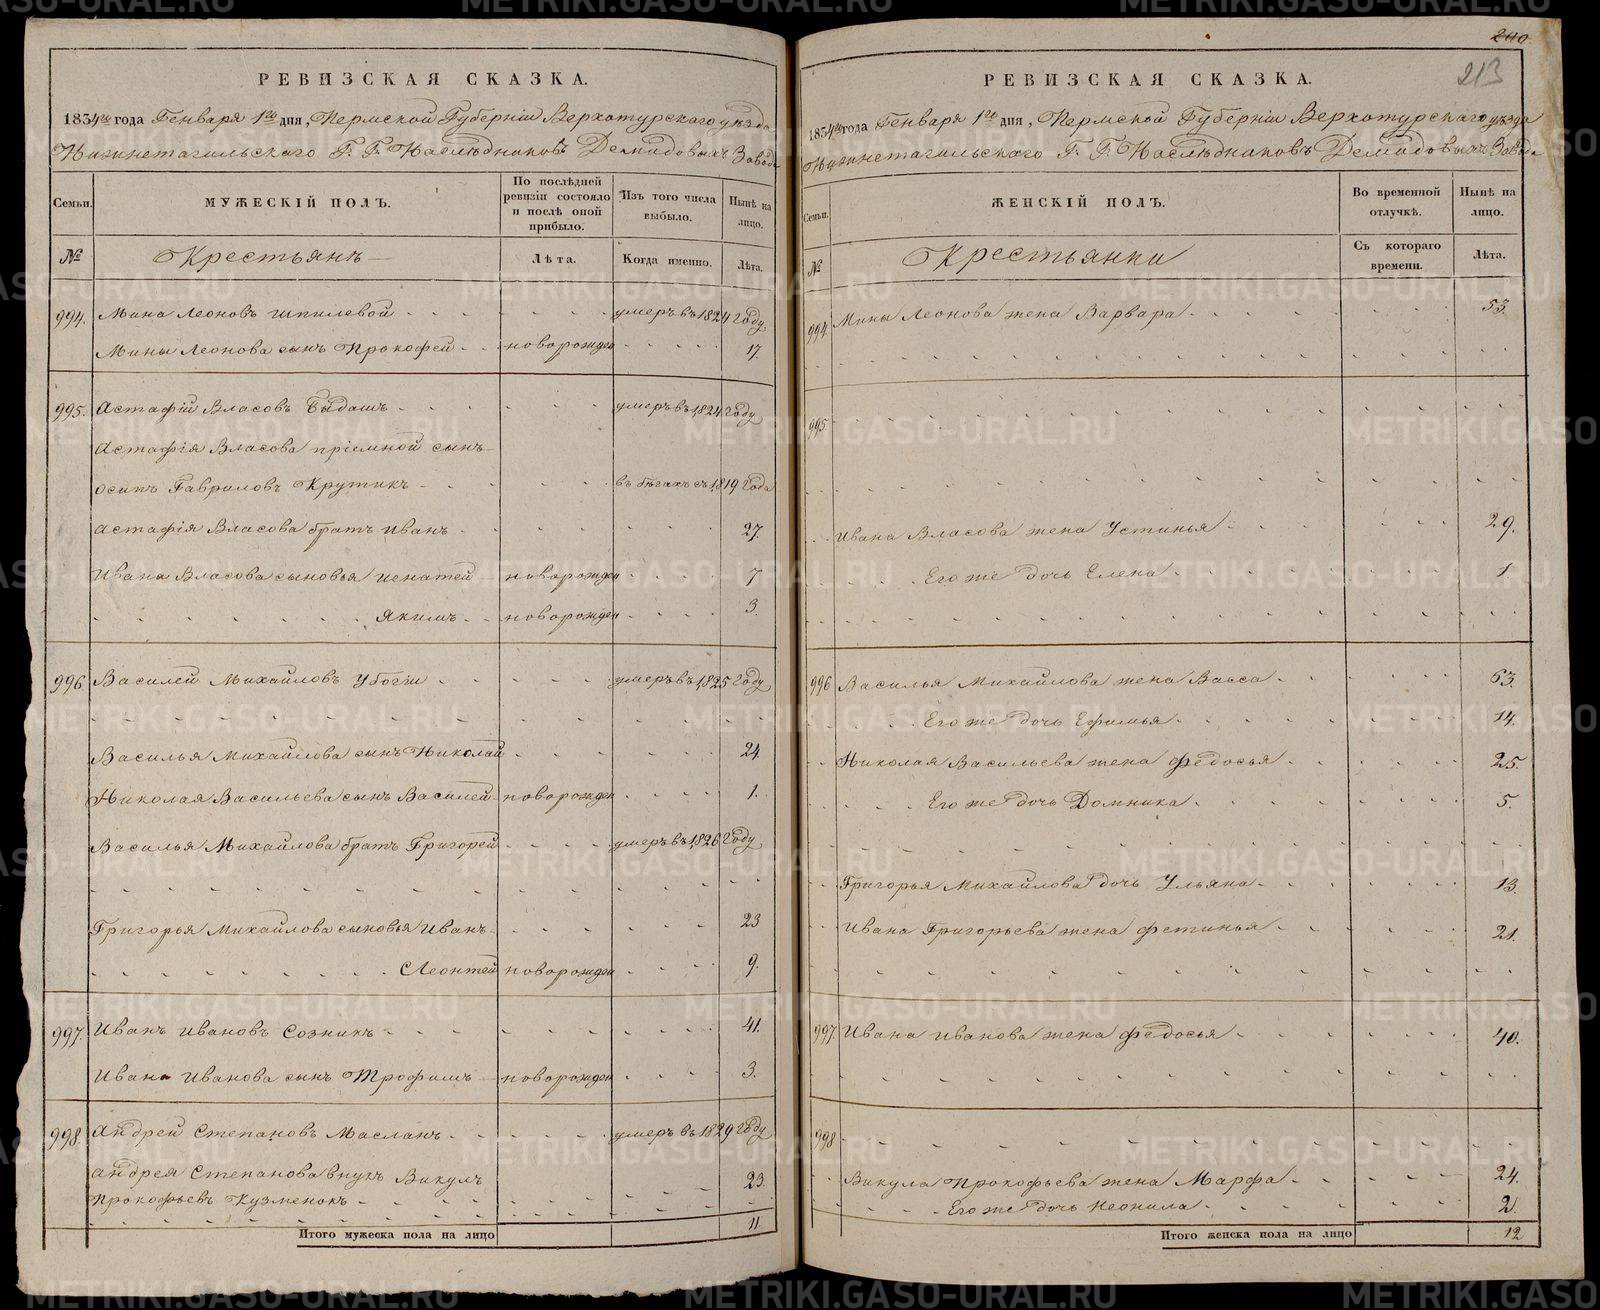 РЕВИЗСКАЯ СКАЗКА.
1834го года Генваря 1го дня, Пермской Губернiи Верхотурскаго уѣзда
Нижнетагильскаго Г. Г. Наслѣдниковъ Демидовыхъ Завода
Семьи.
МУЖЕСКIЙ ПОЛЪ.
По послѣдней ревизiи состояло и послѣ оной прибыло.
Изъ того числа выбыло.
Нынѣ на лицо.
№
Крестьянъ
Лѣта.
Когда именно.
Лѣта.
994. Мина Леоновъ Шпилевой умеръ въ 1824 году
Мины Леонова сынъ Прокофей новорожден 17.
995. Астафiй Власовъ Быдашъ умеръ въ 1824 году
Астафiя Власова прiемной сынъ
Осипъ Гавриловъ Крутикъ въ бѣгахъ съ 1819 года
Астафiя Власова братъ Иванъ 27.
Ивана Власова сыновья Игнатей новорожден 7
Якимъ новорожден 3.
996 Василей Михайловъ Убогiи умеръ въ 1825 году
Василья Михайлова сынъ Николай 24.
Николая Васильева сынъ Василей новорожден 1.
Василья Михайлова братъ Григорей умеръ въ 1826 году
Григорья Михайлова сыновья Иванъ 23
Леонтей новорожден 9.
997. Иванъ Ивановъ Созникъ 41.
Ивана Иванова сынъ Трофимъ новорожден 3.
998. Андрей Степановъ Масланъ умеръ въ 1829 году
Андрея Степанова внукъ Викулъ 23.
Прокофьевъ Кузменокъ
Итого мужеска пола на лицо 11.
240
213
РЕВИЗСКАЯ СКАЗКА.
1834го года Генваря 1го дня, Пермской Губернiи Верхотурскаго уѣзда
Нижнетагильскаго Г. Г. Наслѣдниковъ Демидовыхъ Завода
Семьи.
ЖЕНСКIЙ ПОЛЪ.
Во временной отлучкѣ.
Нынѣ на лицо.
№
Крестьянки
Съ котораго времени.
Лѣта.
994 Мины Леонова жена Варвара 53.
995
Ивана Власова жена Устинья 29.
Его же дочь Елена 1.
996 Василья Михайлова жена Васса 63.
Его же дочь Ефимья 14.
Николая Васильева жена Федосья 25.
Его же дочь Домника 5.
Григорья Михайлова дочь Ульяна 13.
Ивана Григорьева жена Фетинья 21.
997. Ивана Иванова жена Федосья 40.
998
Викула Прокофьева жена Марфа 24.
Его же дочь Неонила 2.
Итого женска пола на лицо 12
METRIKI.GASO-URAL.RU